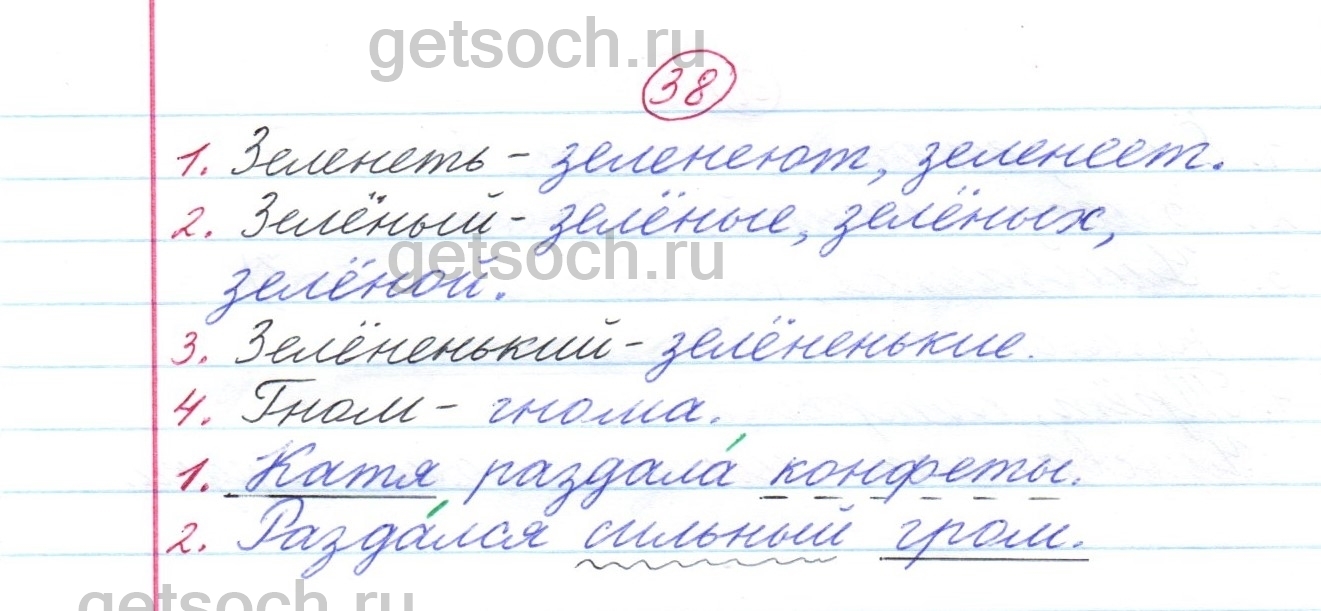 getsoch.ru
38
1. Зеленеть – зеленеют, зеленеет.
2. Зелёный – зелёные, зелёных,
getsoch.ru
зелёной.
3. Зелёненький – зелёненькие.
4. Гном – гнома.
1. Катя раздала́ конфеты.
2. Разда́лся сильный гром.
getsoch.ru